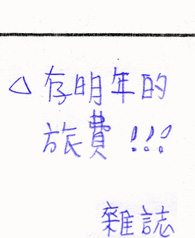 △ 存明年的
旅費!!!
雜誌